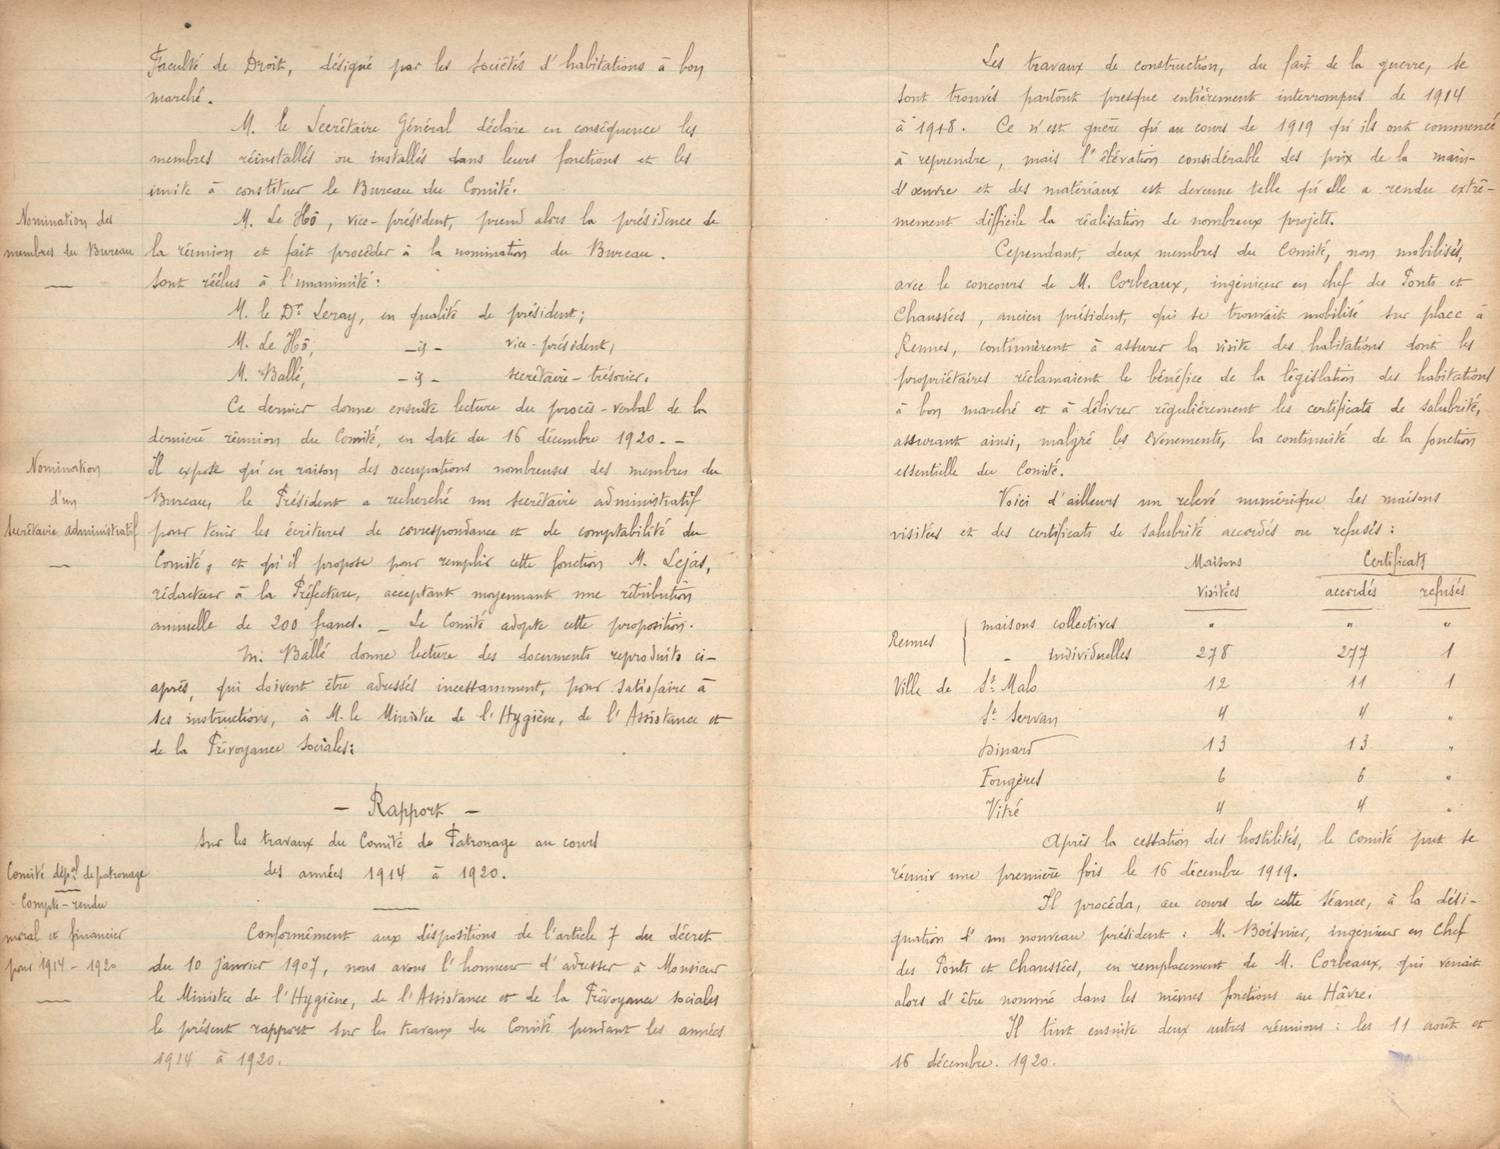 Faculté de Droit, désigné par les sociétés d'habitations à bon
marché.
M. le Secrétaire Général déclare en conséquence les
membres réinstallés ou installés dans leurs fonctions et les
invite à constituer le Bureau du Comité.
Nomination des
membres du Bureau
M. Le Hô, vice-président, prend alors la présidence de
la réunion et fait procéder à la nomination du Bureau.
Sont réélus à l'unanimité:
M. le Dr Leray, en qualité de président;
M. Le Hô, -id- vice-président;
M. Ballé, -id- secrétaire-trésorier.
Ce dernier donne ensuite lecture du procès-verbal de la
dernière réunion du Comité, en date du 16 décembre 1920.-
Nomination
d'un
Secrétaire administratif
Il expose qu'en raison des occupations nombreuses des membres du
Bureau, le Président a recherché un secrétaire administratif
pour tenir les écritures de correspondance et de comptabilité du
Comité, et qu'il propose pour remplir cette fonction M. Lejas,
rédacteur à la Préfecture, acceptant moyennant une rétribution
annuelle de 200 francs. - Le Comité adopte cette proposition.
M. Ballé donne lecture des documents reproduits ci-
après, qui doivent être adressés incessamment, pour satisfaire à
ses instructions, à M. le Ministre de l'Hygiène, de l'Assistance et
de la Prévoyance sociales:
- Rapport -
sur les travaux du Comité de Patronage au cours
des années 1914 à 1920.
Comité dépal de patronage
Compte-rendu
moral et financier
pour 1914-1920
Conformément aux dispositions de l'article 7 du décret
du 10 janvier 1907, nous avons l'honneur d'adresser à Monsieur
le Ministre de l'Hygiène, de l'Assistance et de la Prévoyance sociales
le présent rapport sur les travaux du Comité pendant les années
1914 à 1920.
Les travaux de construction, du fait de la guerre, se
sont trouvés partout presque entièrement interrompus de 1914
à 1918. Ce n'est guère qu'au cours de 1919 qu'ils ont commencé
à reprendre, mais l'élévation considérable des prix de la main-
d'œuvre et des matériaux est devenue telle qu'elle a rendu extrê-
mement difficile la réalisation de nombreux projets.
Cependant, deux membres du Comité, non mobilisés,
avec le concours de M. Corbeaux, ingénieur en chef des Ponts et
Chaussées, ancien président, qui se trouvait mobilisé sur place à
Rennes, continuèrent à assurer la visite des habitations dont les
propriétaires réclamaient le bénéfice de la législation des habitations
à bon marché et à délivrer régulièrement les certificats de salubrité,
assurant ainsi, malgré les évènements, la continuité de la fonction
essentielle du Comité.
Voici d'ailleurs un relevé numérique des maisons
visitées et des certificats de salubrité accordés ou refusés:
Maisons Certificats
visitées accordés refusés
Rennes maisons collectives " " "
- individuelles 278 277 1
Ville de St. Malo 12 11 1
St. Servan 4 4 "
Dinard 13 13 "
Fougères 6 6 "
Vitré 4 4 "
Après la cessation des hostilités, le Comité put se
réunir une première fois le 16 décembre 1919.
Il procéda, au cours de cette séance, à la dési-
gnation d'un nouveau président: M. Boisnier, ingénieur en Chef
des Ponts et Chaussées, en remplacement de M. Corbeaux, qui venait
alors d'être nommé dans les mêmes fonctions au Hâvre.
Il tint ensuite deux autres réunions: les 11 août et
16 décembre 1920.